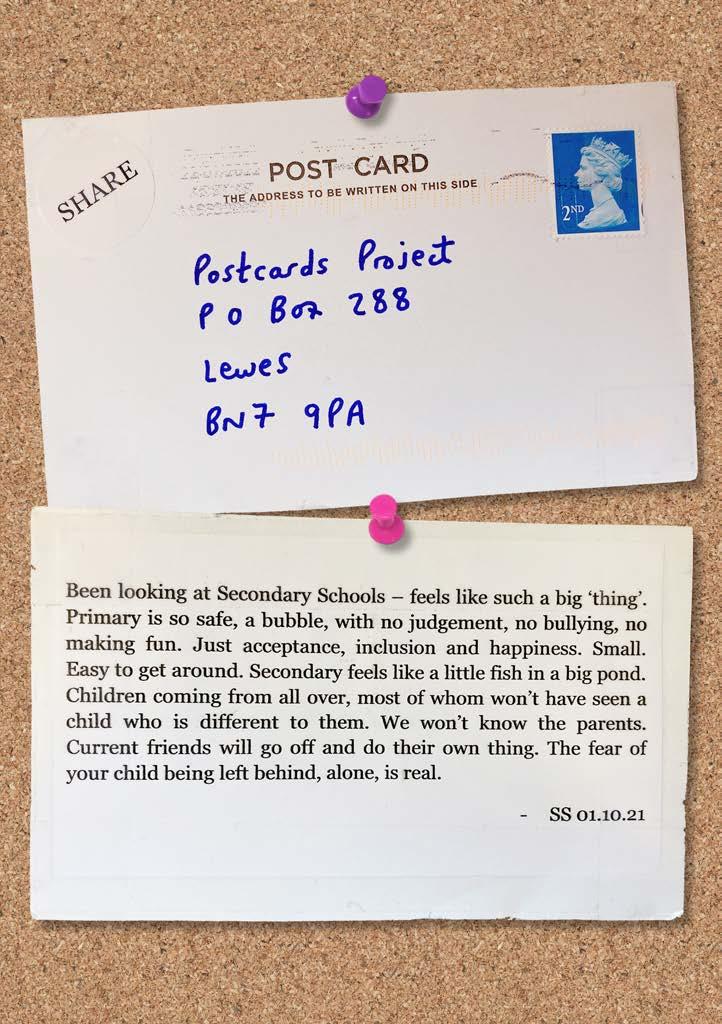 SHARE
POST CARD
THE ADDRESS TO BE WRITTEN ON THIS SIDE
2ND
Postcards Project
P O Box 288
Lewes
BN7 9PA
Been looking at Secondary Schools – feels like such a big ‘thing’.
Primary is so safe, a bubble, with no judgement, no bullying, no
making fun. Just acceptance, inclusion and happiness. Small.
Easy to get around. Secondary feels like a little fish in a big pond.
Children coming from all over, most of whom won’t have seen a
child who is different to them. We won’t know the parents.
Current friends will go off and do their own thing. The fear of
your child being left behind, alone, is real.
- SS 01.10.21